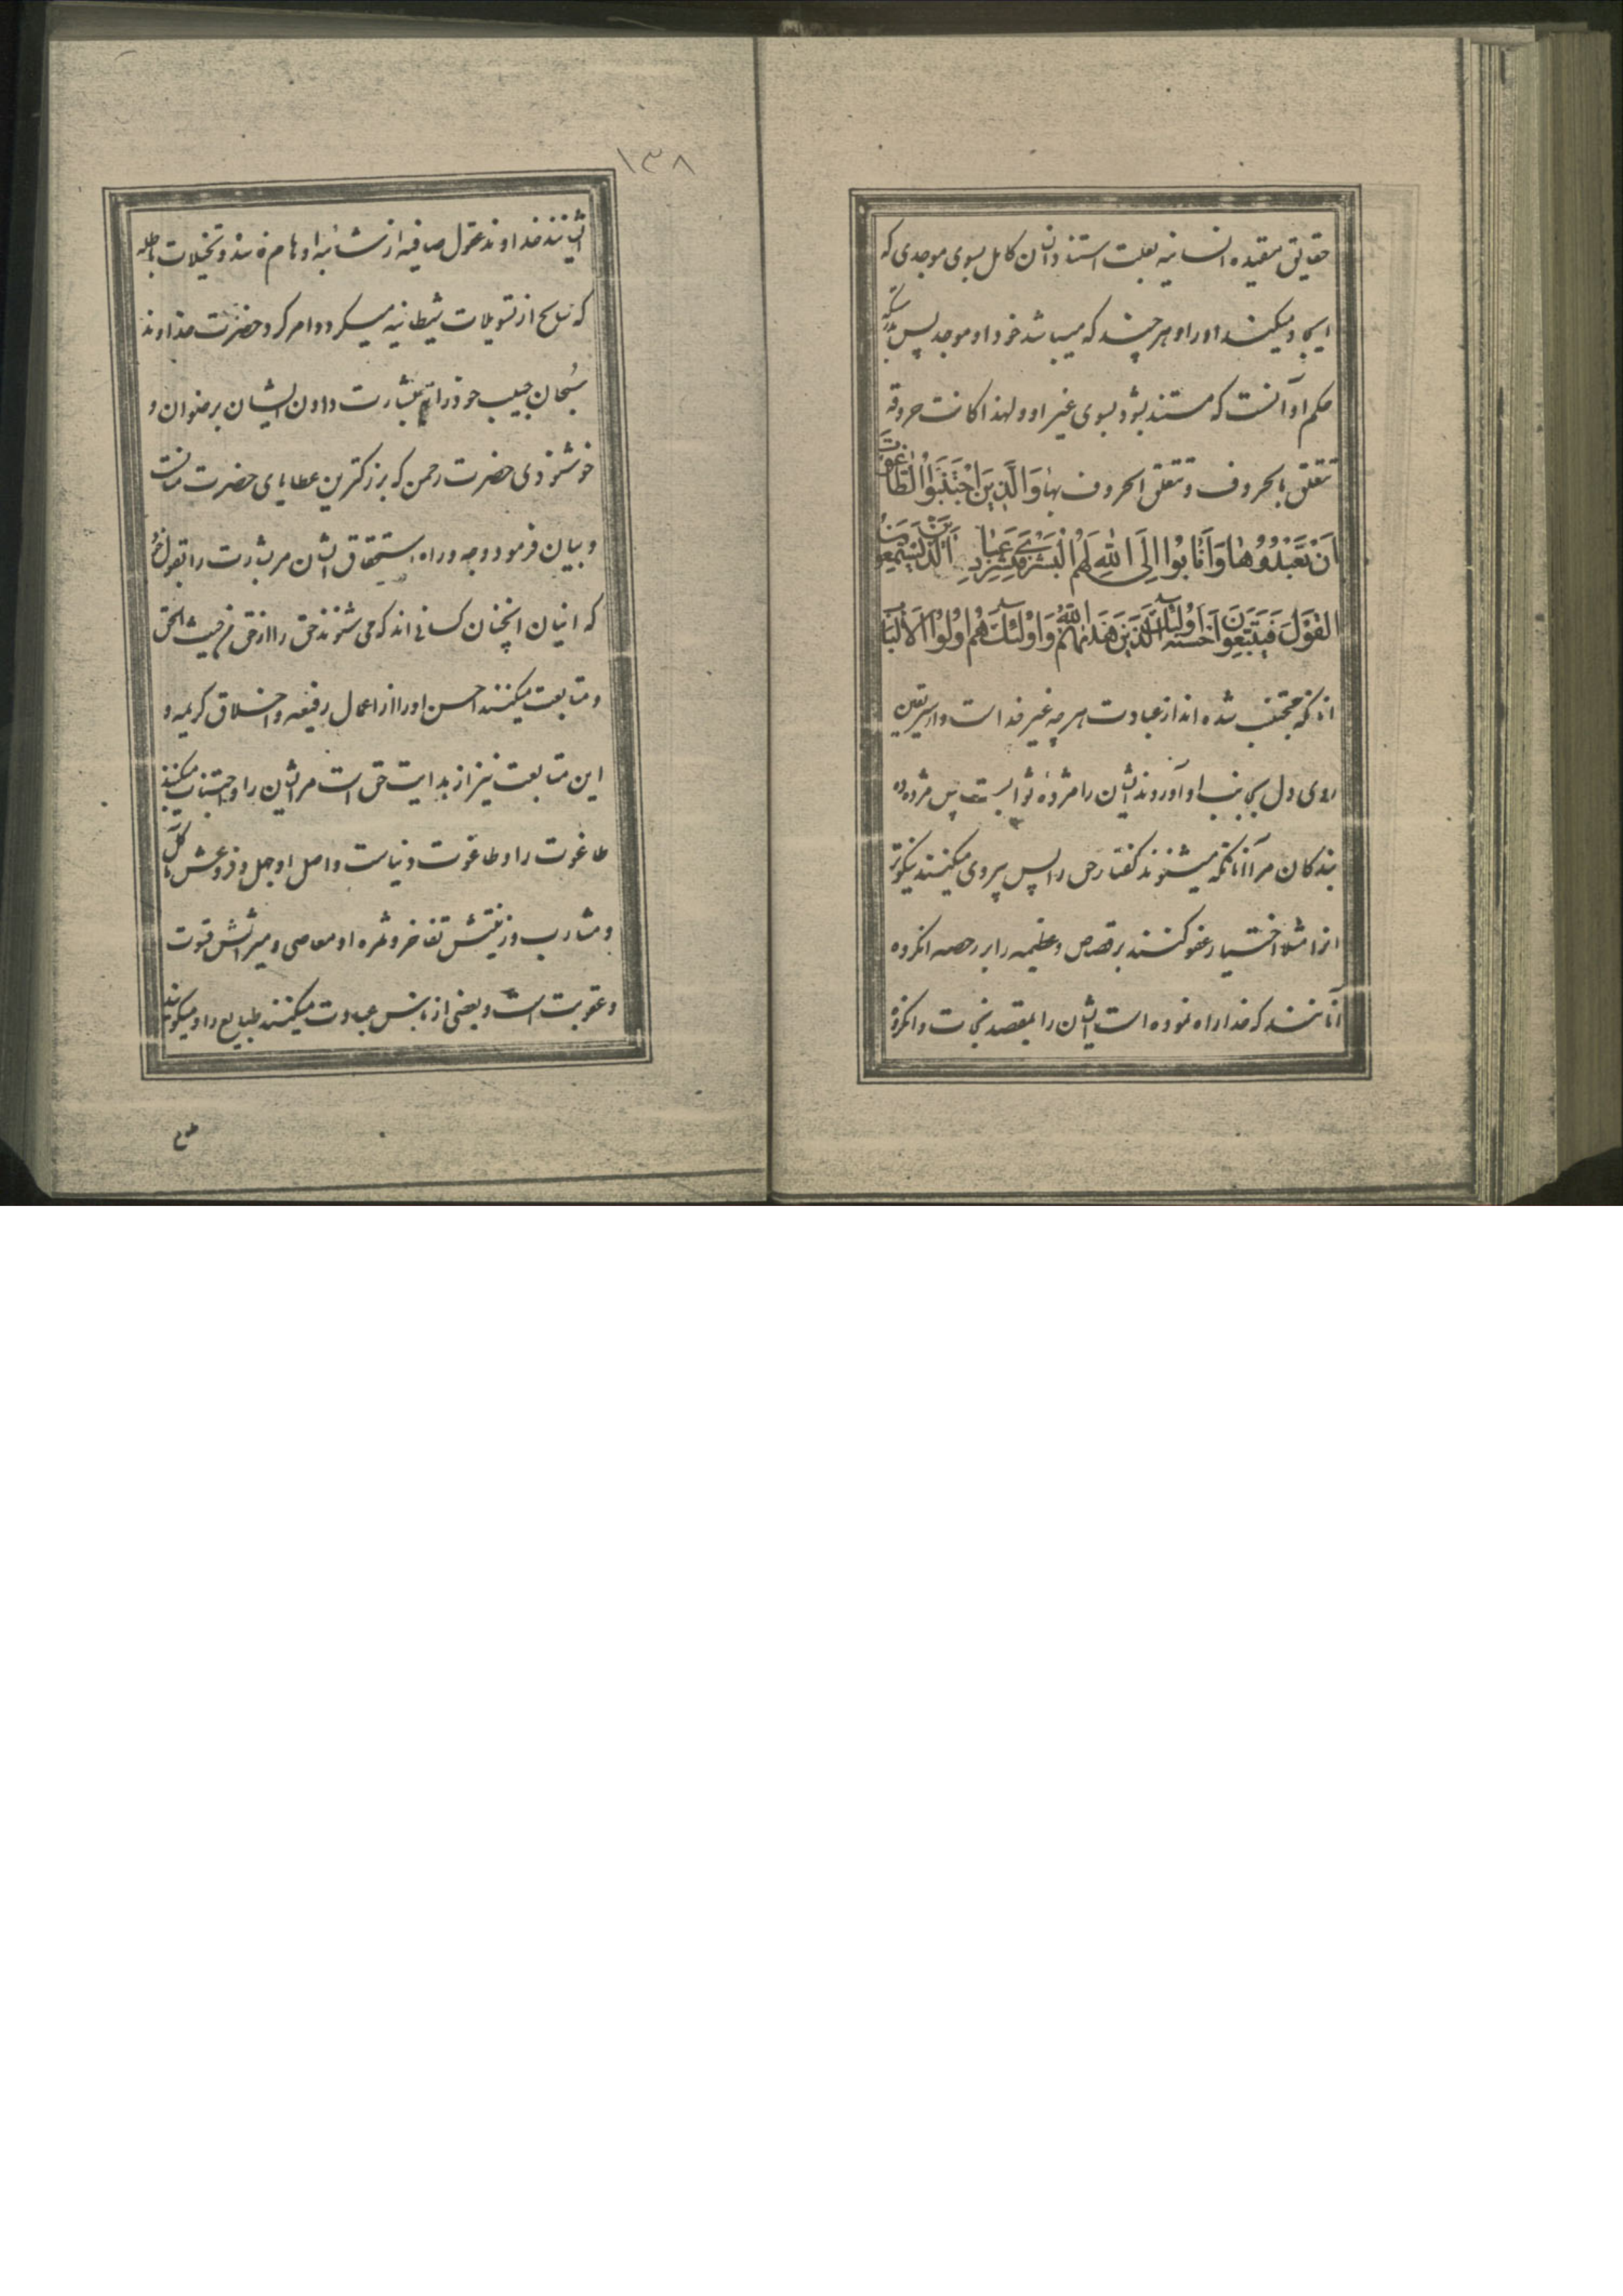 حقایق مقیده انسانیه بعلت استناد انسان کامل بسوی موجدی که
ایجاد میکند او را و هر چند که میباشد خود او موجد پس بدرستیکه
حکم او آنست که مستند بشود بسوی غیر او و لهذا کانت حروفه
تتعلق بالحروف و تتعلق الحروف بها وَالَّذِينَ اجْتَنَبُوا الطَّاغُوتَ
اَنْ يَعْبُدُوهَا وَاَنَابُوا اِلَى اللّٰهِ لَهُمُ الْبُشْرٰى فَبَشِّرْ عِبَادِ اَلَّذِينَ يَسْتَمِعُونَ
الْقَوْلَ فَيَتَّبِعُونَ اَحْسَنَهُ اُولٰئِكَ الَّذِينَ هَدٰيهُمُ اللّٰهُ وَاُولٰئِكَ هُمْ اُولُوا الْاَلْبَابِ
انانکه مجتنب شده اند از عبادت هر چه غیر خداست و از سر یقین
روی دل بجانب او آوردند ایشان را مژده ثوابست پس مژده ده
بندکان مر آنانکه میشنوند کفتار حق را پس پیروی میکنند نیکوتر
انرا مثلا اختیار عفو کنند بر قصاص و عظیمه را بر رخصه انکروه
آنانند که خدا راه نموده است ایشان را بمقصد نجات و انکروه
۱۳۸
ایشانند خداوند عقول صافیه از شائبه اوهام فاسده و تخیلات باطله
که ناسخ از تسویلات شیطانیه میکردد امر کرد حضرت خداوند
سبحان حبیب خود را به بشارت دادن ایشان برضوان و
خوشنودی حضرت رحمن که بزرکترین عطایای حضرت منانست
و بیان فرمود وجه و راه استحقاق ایشان مر بشارت را بقول خود
که اینان انچنان کسانی اند که می شنوند حق را از حق من حیث الحق
و متابعت میکنند احسن او را از اعمال رفیعه و اخلاق کریمه و
این متابعت نیز از هدایت حق است مر ایشان را و اجتناب میکنند
طاغوت را و طاغوت دنیاست و اصل او جهل و فروعش مآکل
و مشارب و زینتش تفاخر و ثمره او معاصی و میراثش قسوت
و عقوبت است و بعضی از ناس عبادت میکنند طبایع را و میکویند